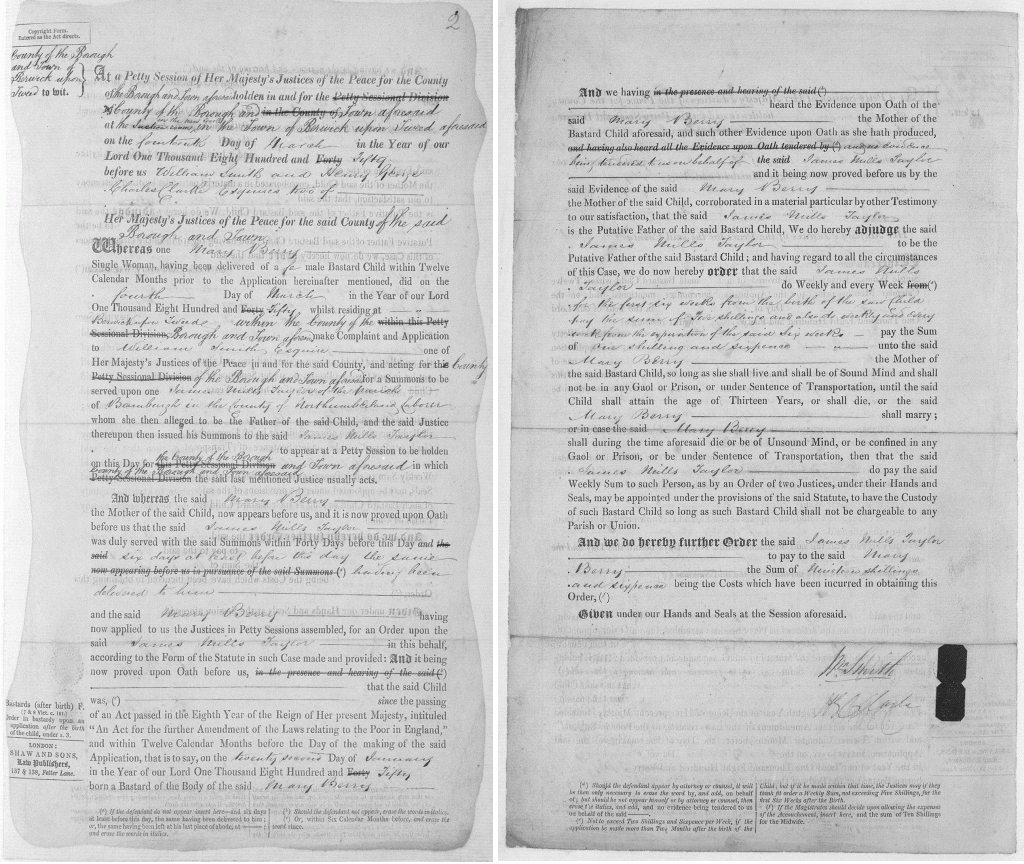 2
Copyright Form.
Entered as the Act directs.
County of the Borough
and Town of
Berwick upon
Tweed to wit.
At a Petty Session of Her Majesty's Justices of the Peace for the County
of the Borough and Town aforesaid holden in and for the Petty Sessional Division
County of the Borough and in the County of Town aforesaid
at the in the Town of Berwick upon Tweed aforesaid
on the fourteenth Day of March in the Year of our
Lord One Thousand Eight Hundred and Forty Fifty
before us William Smith and Henry
Charles Esquires two of
Her Majesty's Justices of the Peace for the said County of the said
Borough and Town
Whereas one Mary Berry
Single Woman, having been delivered of a fe male Bastard Child within Twelve
Calendar Months prior to the Application hereinafter mentioned, did on the
fourth Day of March in the Year of our Lord
One Thousand Eight Hundred and Forty Fifty whilst residing at
Berwick upon Tweed within the County of the within this Petty
Sessional Division, Borough and Town aforesaid make Complaint and Application
to William Smith Esquire one of
Her Majesty's Justices of the Peace in and for the said County, and acting for the County
Petty Sessional Division of the Borough and Town aforesaid for a Summons to be
served upon one James Mills Taylor of the Parish
of Bamburgh in the County of Northumberland Laborer
whom she then alleged to be the Father of the said Child, and the said Justice
thereupon then issued his Summons to the said James Mills Taylor
to appear at a Petty Session to be holden
on this Day for the County of the Borough this Petty Sessional Division and Town aforesaid in which
County of the Borough and Town aforesaid
Petty Sessional Division the said last mentioned Justice usually acts.
And whereas the said Mary Berry
the Mother of the said Child, now appears before us, and it is now proved upon Oath
before us that the said James Mills Taylor
was duly served with the said Summons within Forty Days before this Day and the
said six days at least before this day the same
now appearing before us in pursuance of the said Summons (¹) having been
delivered to him
and the said Mary Berry having
now applied to us the Justices in Petty Sessions assembled, for an Order upon the
said James Mills Taylor in this behalf,
according to the Form of the Statute in such Case made and provided: And it being
now proved upon Oath before us, in the presence and hearing of the said (²)
that the said Child
was, (³) since the passing
of an Act passed in the Eighth Year of the Reign of Her present Majesty, intituled
"An Act for the further Amendment of the Laws relating to the Poor in England,"
and within Twelve Calendar Months before the Day of the making of the said
Application, that is to say, on the twenty second Day of January
in the Year of our Lord One Thousand Eight Hundred and Forty Fifty
born a Bastard of the Body of the said Mary Berry
Bastards (after birth) F.
(7 & 8 Vict. c. 101.)
Order in bastardy upon an
application after the birth
of the child, under s. 3.
LONDON:
SHAW AND SONS,
Law Publishers,
137 & 138, Fetter Lane.
(¹) If the defendant do not appear insert here—and six days
at least before this day, the same having been delivered to him;
or, the same having been left at his last place of abode, at
and erase the words in italics.
(²) Should the defendant not appear, erase the words in italics.
(³) Or, within Six Calendar Months before, and erase the
word since.
And we having in the presence and hearing of the said (⁴)
heard the Evidence upon Oath of the
said Mary Berry the Mother of the
Bastard Child aforesaid, and such other Evidence upon Oath as she hath produced,
and having also heard all the Evidence upon Oath tendered by (⁴) and no evidence
being tendered to us on behalf of the said James Mills Taylor
and it being now proved before us by the
said Evidence of the said Mary Berry
the Mother of the said Child, corroborated in a material particular by other Testimony
to our satisfaction, that the said James Mills Taylor
is the Putative Father of the said Bastard Child, We do hereby adjudge the said
James Mills Taylor to be the
Putative Father of the said Bastard Child; and having regard to all the circumstances
of this Case, we do now hereby order that the said James Mills
Taylor do Weekly and every Week from (⁵)
for the first six weeks from the birth of the said Child
pay the sum of Five shillings and also do weekly and every
week from the expiration of the said six weeks pay the Sum
of One shilling and sixpence unto the said
Mary Berry the Mother of
the said Bastard Child, so long as she shall live and shall be of Sound Mind and shall
not be in any Gaol or Prison, or under Sentence of Transportation, until the said
Child shall attain the age of Thirteen Years, or shall die, or the said
Mary Berry shall marry;
or in case the said Mary Berry
shall during the time aforesaid die or be of Unsound Mind, or be confined in any
Gaol or Prison, or be under Sentence of Transportation, then that the said
James Mills Taylor do pay the said
Weekly Sum to such Person, as by an Order of two Justices, under their Hands and
Seals, may be appointed under the provisions of the said Statute, to have the Custody
of such Bastard Child so long as such Bastard Child shall not be chargeable to any
Parish or Union.
And we do hereby further Order the said James Mills Taylor
to pay to the said Mary
Berry the Sum of Nineteen shillings
and sixpence being the Costs which have been incurred in obtaining this
Order, (⁶)
Given under our Hands and Seals at the Session aforesaid.
Wm Smith
(⁴) Should the defendant appear by attorney or counsel, it will
be then only necessary to erase the word by, and add, on behalf
of; but should he not appear himself or by attorney or counsel, then
erase the italics, and add, and no evidence being tendered to us
on behalf of the said
(⁵) Not to exceed Two Shillings and Sixpence per Week, if the
application be made more than Two Months after the birth of the
Child, but if it be made within that time, the Justices may if they
think fit order a Weekly Sum, not exceeding Five Shillings, for the
first Six Weeks after the Birth.
(⁶) If the Magistrates should decide upon allowing the expenses
of the Accouchement, insert here, and the sum of Ten Shillings
for the Midwife.